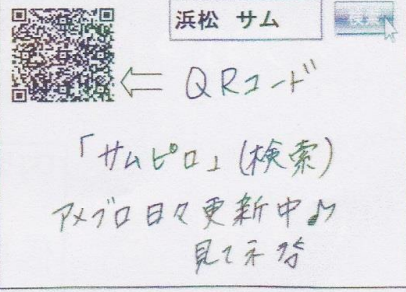 浜松 サム
検索
QRコード
「サムピロ」(検索)
アメブロ日々更新中♪
見て